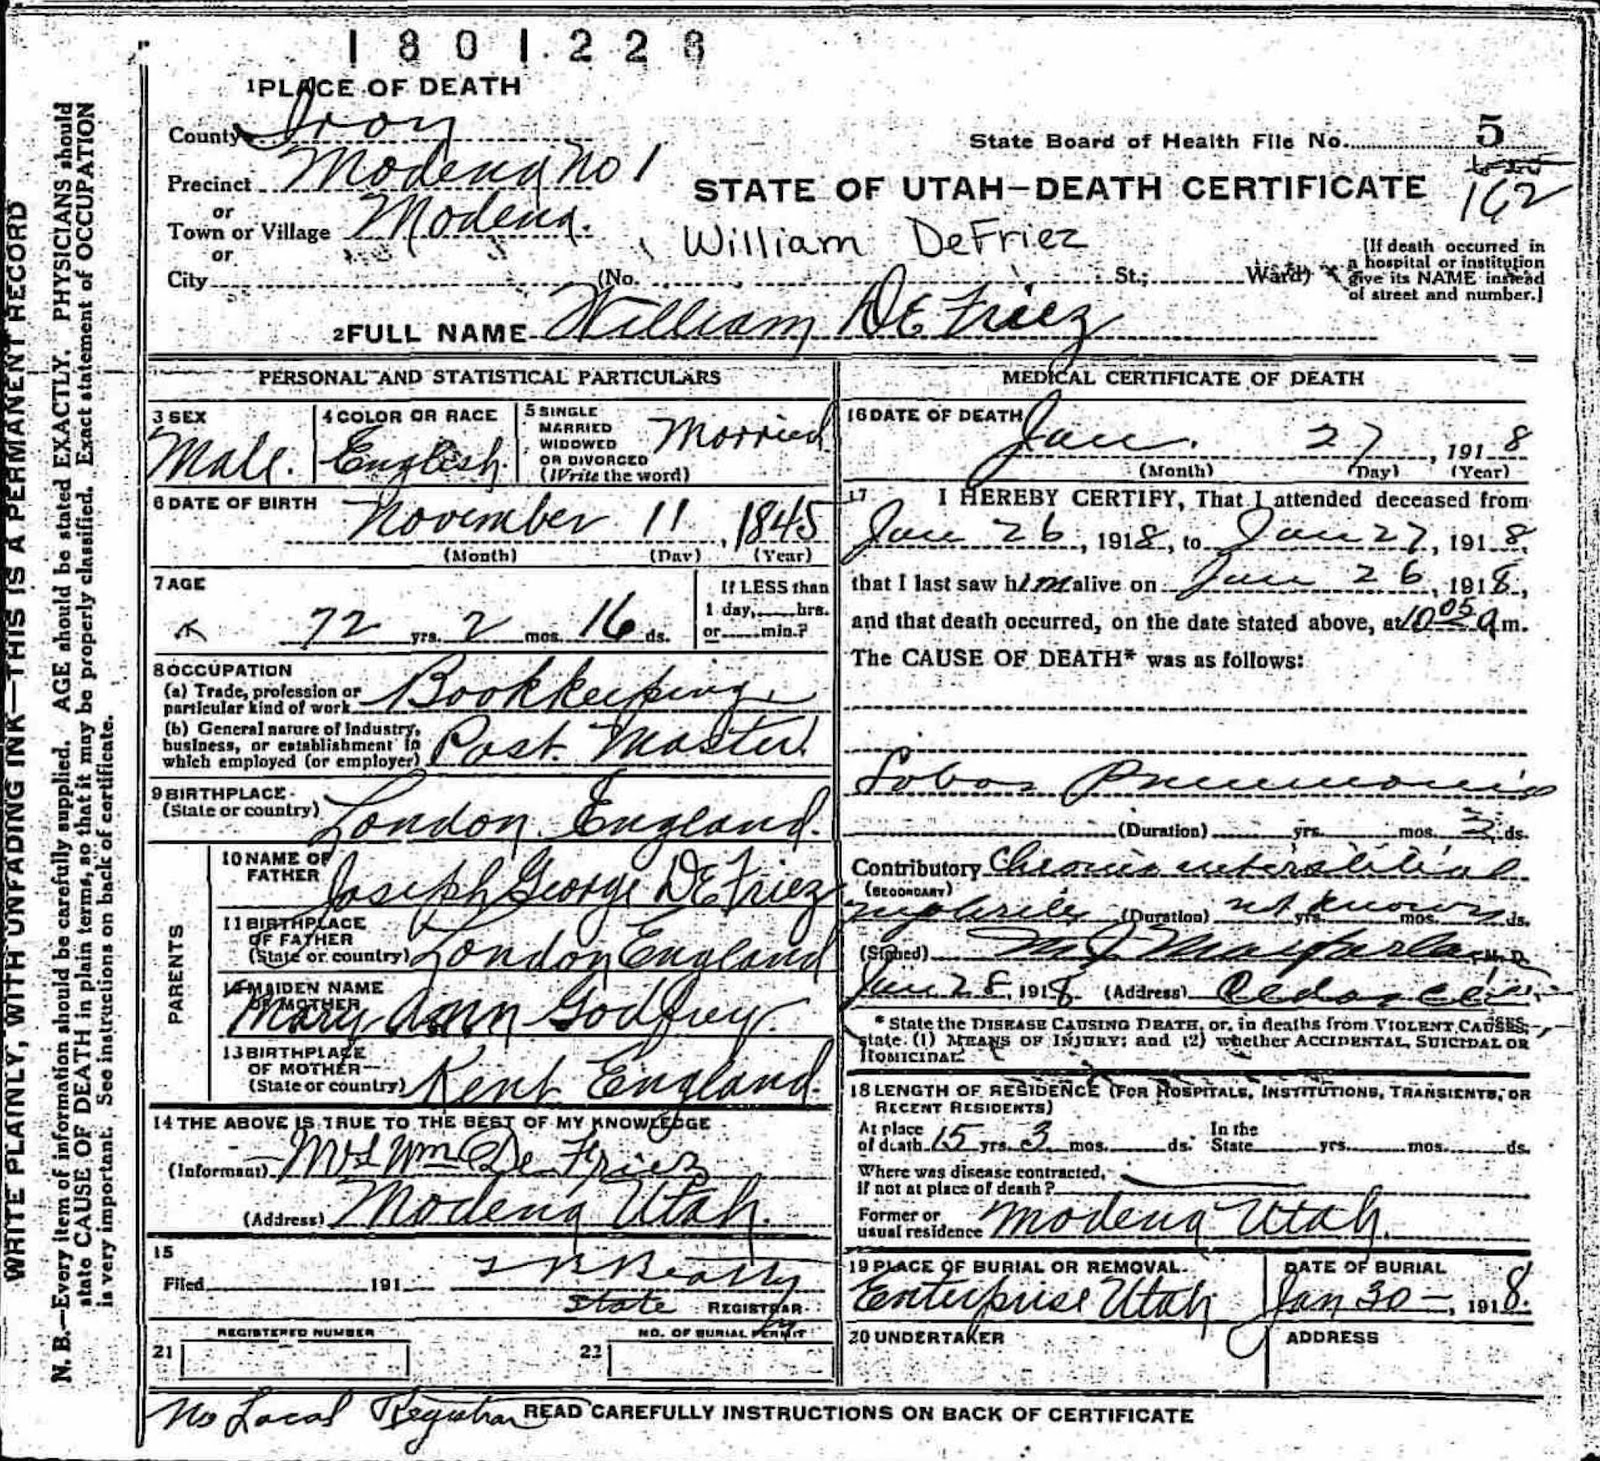 1801226
1 PLACE OF DEATH
County Iron
State Board of Health File No. 5
Precinct Modena No 1
162
STATE OF UTAH—DEATH CERTIFICATE
or
Town or Village Modena.
William DeFriez
or
City (No. St.; Ward)
[If death occurred in
a hospital or institution
give its NAME instead
of street and number.]
2 FULL NAME William DeFriez
PERSONAL AND STATISTICAL PARTICULARS
3 SEX
Male.
4 COLOR OR RACE
English.
5 SINGLE
MARRIED
WIDOWED
OR DIVORCED
(Write the word)
Married
6 DATE OF BIRTH
November 11, 1845
(Month) (Day) (Year)
7 AGE
72 yrs. 2 mos. 16 ds.
If LESS than
1 day, hrs.
or min.?
8 OCCUPATION
(a) Trade, profession or
particular kind of work Bookkeeping
(b) General nature of industry,
business, or establishment in
which employed (or employer) Post Master.
9 BIRTHPLACE
(State or country) London England.
PARENTS
10 NAME OF
FATHER Joseph George DeFriez
11 BIRTHPLACE
OF FATHER
(State or country) London England
12 MAIDEN NAME
OF MOTHER
Mary Ann Godfrey.
13 BIRTHPLACE
OF MOTHER
(State or country) Kent England.
14 THE ABOVE IS TRUE TO THE BEST OF MY KNOWLEDGE
(Informant) Mrs Wm De Friez
(Address) Modena Utah.
15
Filed 191 T B Beatty
State REGISTRAR
REGISTERED NUMBER
21
NO. OF BURIAL PERMIT
22
MEDICAL CERTIFICATE OF DEATH
16 DATE OF DEATH
Jan. 27, 1918
(Month) (Day) (Year)
17 I HEREBY CERTIFY, That I attended deceased from
Jan 26, 1918, to Jan 27, 1918,
that I last saw him alive on Jan 26, 1918,
and that death occurred, on the date stated above, at 10 05 a m.
The CAUSE OF DEATH* was as follows:
Lobar Pneumonia
(Duration) yrs. mos. 3 ds.
Contributory Chronic interstitial
(SECONDARY)
nephritis (Duration) not known yrs. mos. ds.
(Signed) M J Macfarlane M. D.
Jan 28, 1918 (Address) Cedar City
* State the DISEASE CAUSING DEATH, or, in deaths from VIOLENT CAUSES,
state (1) MEANS OF INJURY; and (2) whether ACCIDENTAL, SUICIDAL OR
HOMICIDAL.
18 LENGTH OF RESIDENCE (FOR HOSPITALS, INSTITUTIONS, TRANSIENTS, OR
RECENT RESIDENTS)
At place
of death 15 yrs. 3 mos. ds.
In the
State yrs. mos. ds.
Where was disease contracted,
If not at place of death?
Former or
usual residence Modena Utah.
19 PLACE OF BURIAL OR REMOVAL
Enterprise Utah
DATE OF BURIAL
Jan 30 —, 1918.
20 UNDERTAKER
ADDRESS
No Local Registrar READ CAREFULLY INSTRUCTIONS ON BACK OF CERTIFICATE
WRITE PLAINLY, WITH UNFADING INK—THIS IS A PERMANENT RECORD
N. B.—Every item of information should be carefully supplied. AGE should be stated EXACTLY. PHYSICIANS should
state CAUSE OF DEATH in plain terms, so that it may be properly classified. Exact statement of OCCUPATION
is very important. See instructions on back of certificate.